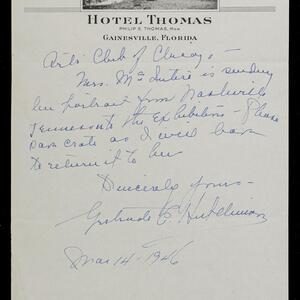 HOTEL THOMAS
PHILIP S. THOMAS, MGR.
GAINESVILLE, FLORIDA
Arts Club of Chicago –
Mrs. McIntire is sending
her portrait from Nashville
Tennessee to the Exhibition – Please
save crate as I will have
to return it to her
Sincerely yours –
Gertrude C. Hutchinson
Mar 14 – 1946